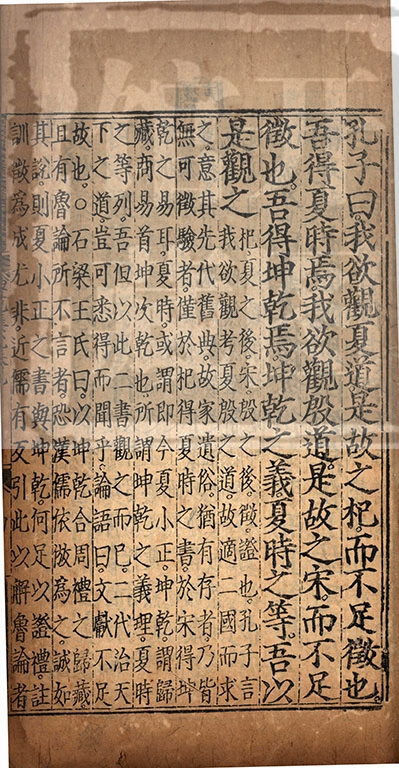 孔子曰。我欲觀夏道是故之杞而不足徵也
吾得夏時焉。我欲觀殷道。是故之宋而不足
徵也。吾得坤乾焉。坤乾之義。夏時之等。吾以
是觀之
杞夏之後。宋殷之後。徵。證也。孔子言
我欲觀考夏殷之道。故適二國而求
之。意其先代舊典。故家遺俗。猶有存者乃皆
無可徵驗者。僅於杞得夏時之書。於宋得坤
乾之易耳。夏時。或謂即今夏小正。坤乾謂歸
藏。商易首坤次乾也。所謂坤乾之義理。夏時
之等列。吾但以此二書觀之而已。二代治天
下之道。豈可悉得而聞乎。論語曰。文獻不足
故也。○石梁王氏曰。以坤乾合周禮之歸藏
且有魯論所不言者。恐漢儒依倣為之。誠如
其說。則夏小正之書與坤乾何足以證禮。註
訓徵為成尤非。近儒有反引此以解魯論者